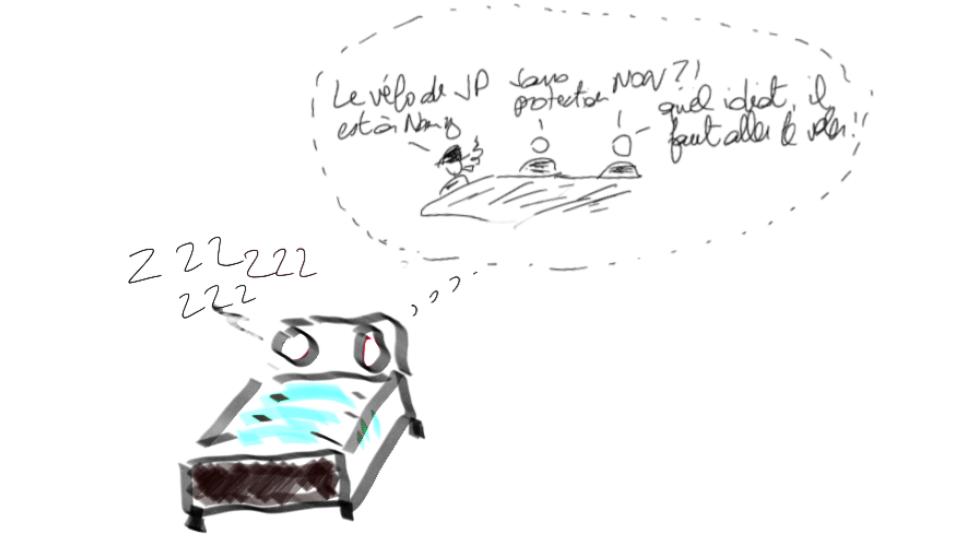 Le vélo de JP
est à Nancy
sans
protection
NON ?!
quel idiot, il
faut aller le voler !!
Z Z Z Z Z Z
Z Z Z